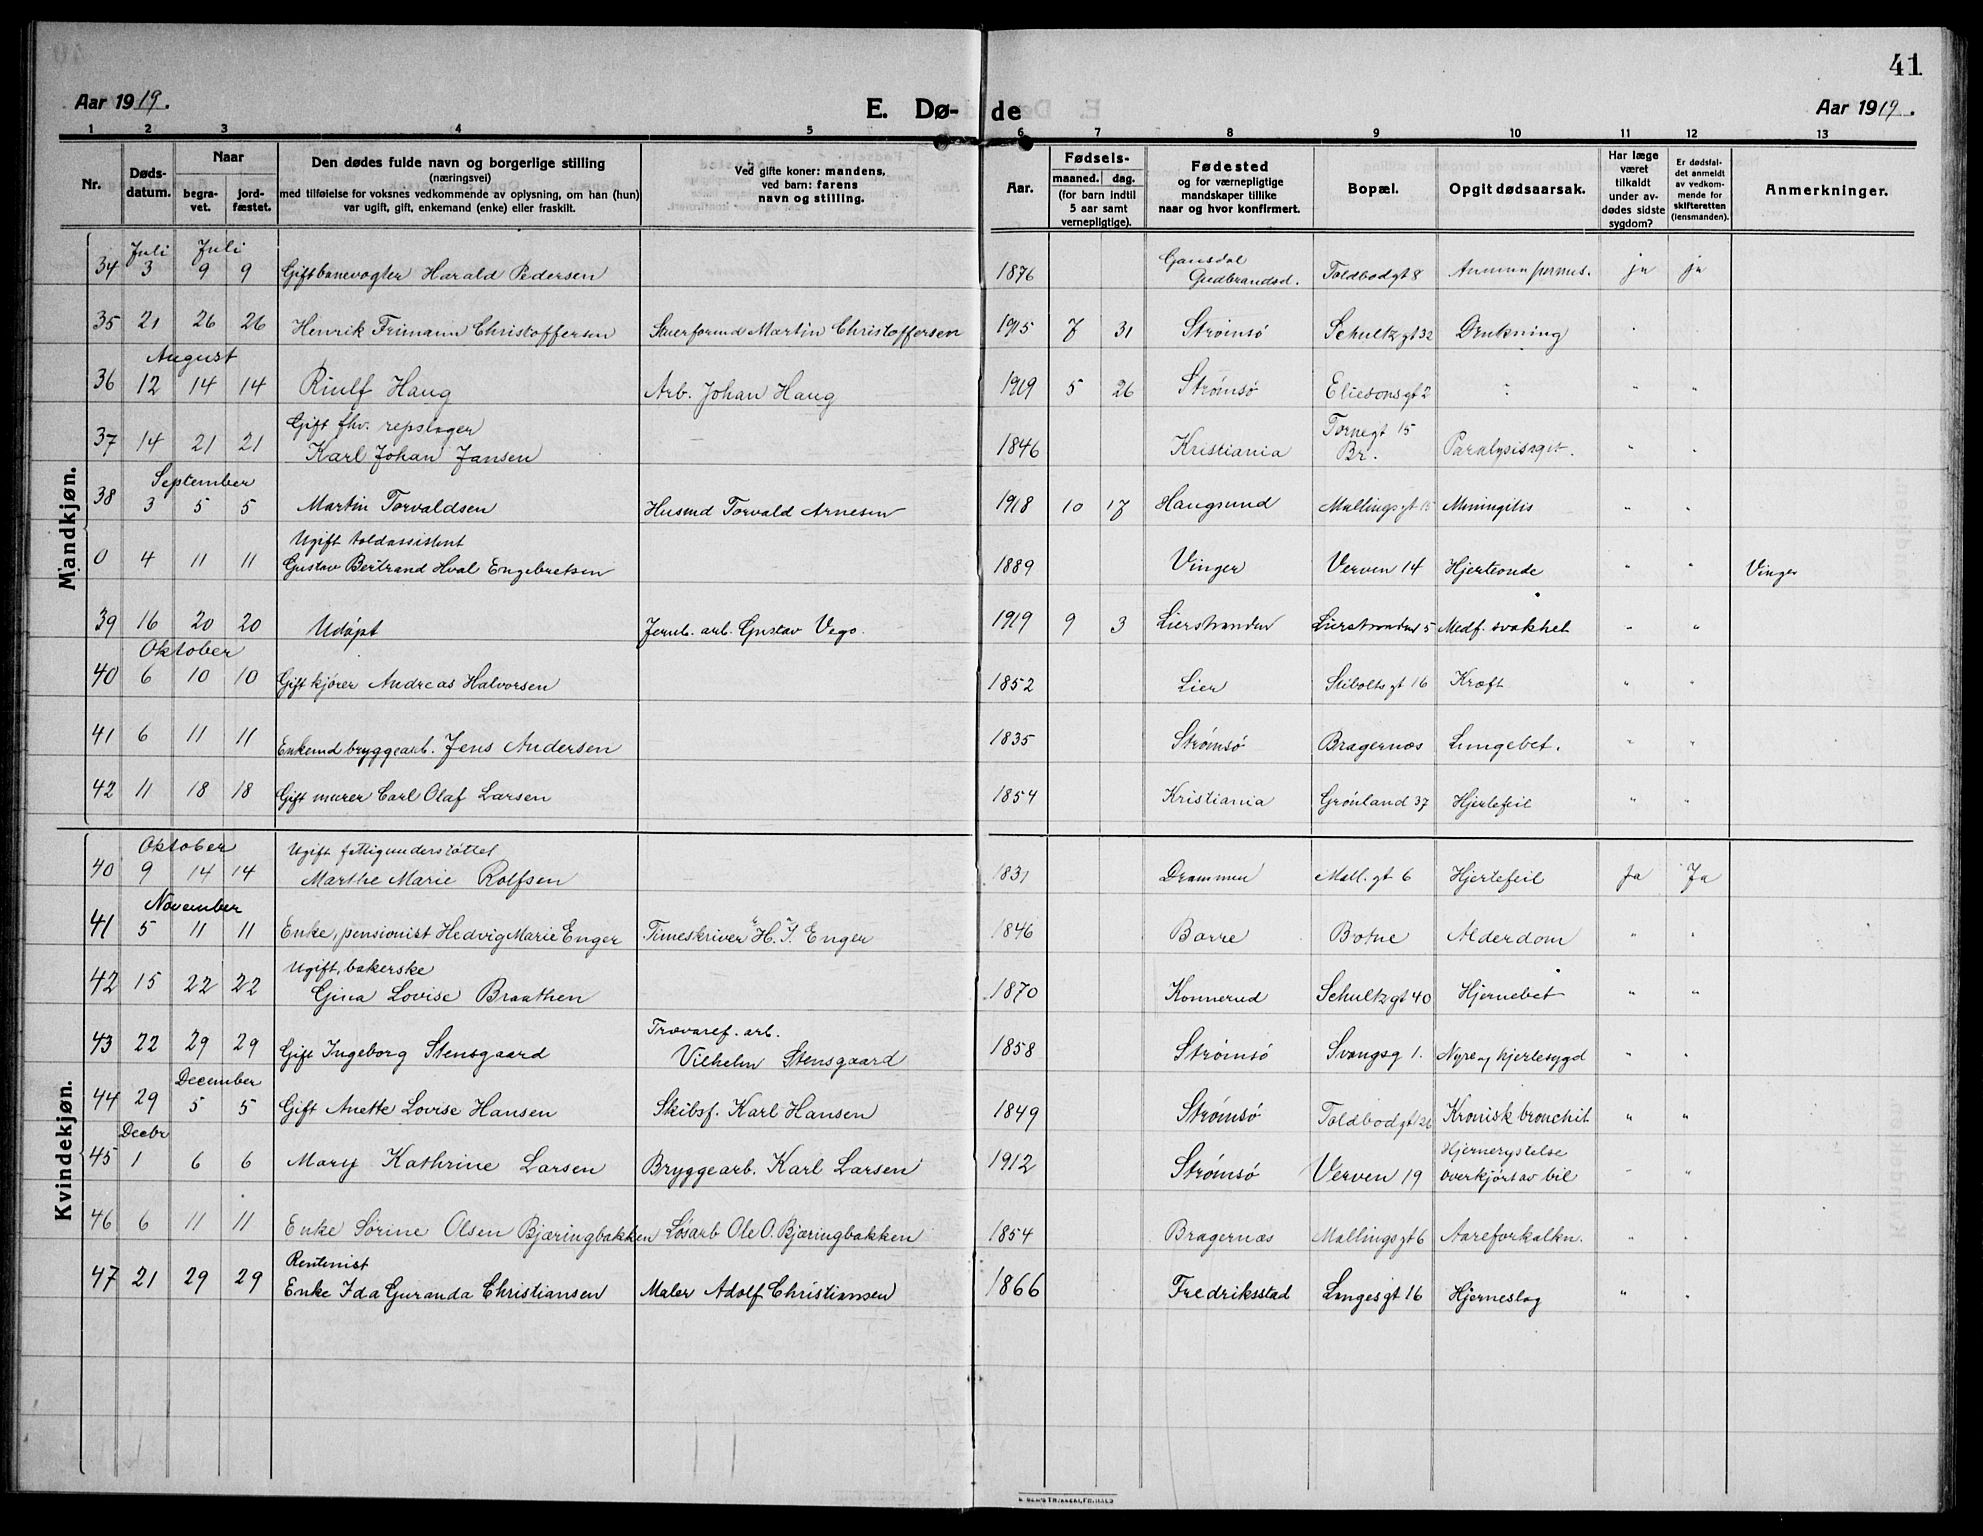 41
Aar 1919.
E. Dø- de
Aar 1919.
1 2 3 4 5 6 7 8 9 10 11 12 13
Nr.
Døds-
datum.
Naar
begra-
vet.
jord-
fæstet.
Den dødes fulde navn og borgerlige stilling
(næringsvei)
med tilføielse for voksnes vedkommende av oplysning, om han (hun)
var ugift, gift, enkemand (enke) eller fraskilt.
Ved gifte koner: mandens,
ved barn: farens
navn og stilling.
Aar.
Fødsels-
maaned. dag.
(for barn indtil
5 aar samt
vernepligtige).
Fødested
og for værnepligtige
mandskaper tillike
naar og hvor konfirmert.
Bopæl.
Opgit dødsaarsak.
Har læge
været
tilkaldt
under av-
dødes sidste
sygdom?
Er dødsfal-
det anmeldt
av vedkom-
mende for
skifteretten
(lensmanden).
Anmerkninger.
Mandkjøn.
Juli Juli
34 3 9 9 Gift banevogter Harald Pedersen 1876 Gausdal Gudbrandsd. Toldbodgt 8 ja ja
35 21 26 26 Henrik Frimann Christoffersen Martin Christoffersen 1915 7 31 Strømsø Schultzgt 32 Drukning
August
36 12 14 14 Riulf Haug Arb. Johan Haug 1919 5 26 Strømsø Eliesonsgt 2 " " "
Gift fhv. repslager
37 14 21 21 Karl Johan Jansen 1846 Kristiania Tornegt 15 Br. " "
September
38 3 5 5 Martin Torvaldsen Husmd Torvald Arnesen 1918 10 17 Haugsund Mallingsgt 15 Meningitis " "
Ugift toldassistent
0 4 11 11 Gustav Bertrand Hval Engebretsen 1889 Vinger Verven 14 Hjerteonde " " Vinger
39 16 20 20 Udøpt Jernb. arb. Gustav Vego. 1919 9 3 Lierstranden Lierstranden 5 Medf. svakhet " "
Oktober
40 6 10 10 Gift kjører Andreas Halvorsen 1852 Lier Stiboltsgt 16 Kræft " "
41 6 11 11 Enkemd bryggearb. Jens Andersen 1835 Strømsø Bragernæs Lungebet. " "
42 11 18 18 Gift murer Carl Olaf Larsen 1854 Kristiania Grønland 37 Hjertefeil " "
Kvindekjøn.
Oktober
Ugift fattigunderstøttet
40 9 14 14 Marthe Marie Rolfsen 1831 Drammen Mall. gt 6 Hjertefeil Ja Ja
November
41 5 11 11 Enke, pensionist Hedvig Marie Enger Timeskriver H. J. Enger 1846 Borre Botne Alderdom " "
Ugift, bakerske
42 15 22 22 Gina Lovise Braathen 1870 Konnerud Schultzgt 40 Hjernebet " "
43 22 29 29 Gift Ingeborg Stensgaard Trævaref. arb. Vilhelm Stensgaard 1858 Strømsø Svangsg 1. Nyre og hjertesygd " "
December
44 29 5 5 Gift Anette Lovise Hansen Skibsf. Karl Hansen 1849 Strømsø Toldbodgt 26 Kronisk bronchit " "
Decbr
45 1 6 6 Mary Kathrine Larsen Bryggearb. Karl Larsen 1912 Strømsø Verven 19 Hjernerystelse overkjørt av bil " "
46 6 11 11 Enke Sørine Olsen Bjæringbakken Løsarb Ole O. Bjæringbakken 1854 Bragernæs Mallingsgt 6 Aareforkalkn. " "
Rentenist
47 21 29 29 Enke Ida Guranda Christiansen Maler Adolf Christiansen 1866 Fredriksstad Langesgt 16 Hjerneslag " "